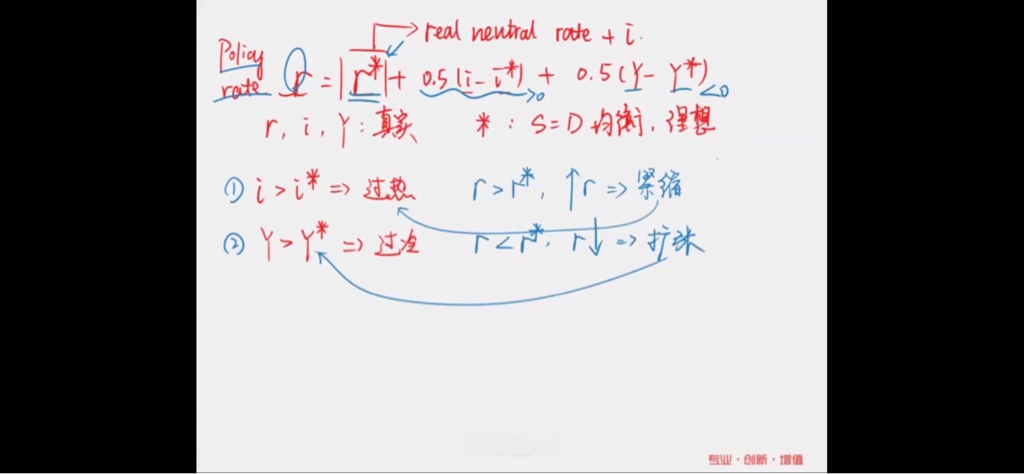 real neutral rate + i.
Policy rate r = |r*| + 0.5(i - i*) + 0.5(Y - Y*)
>0 <0
r, i, Y : 真实 * : S=D 均衡, 理想
① i > i* => 过热 r > r*, ↑r => 紧缩
② Y > Y* => 过冷 r < r*, r↓ => 扩张
专业·创新·增值